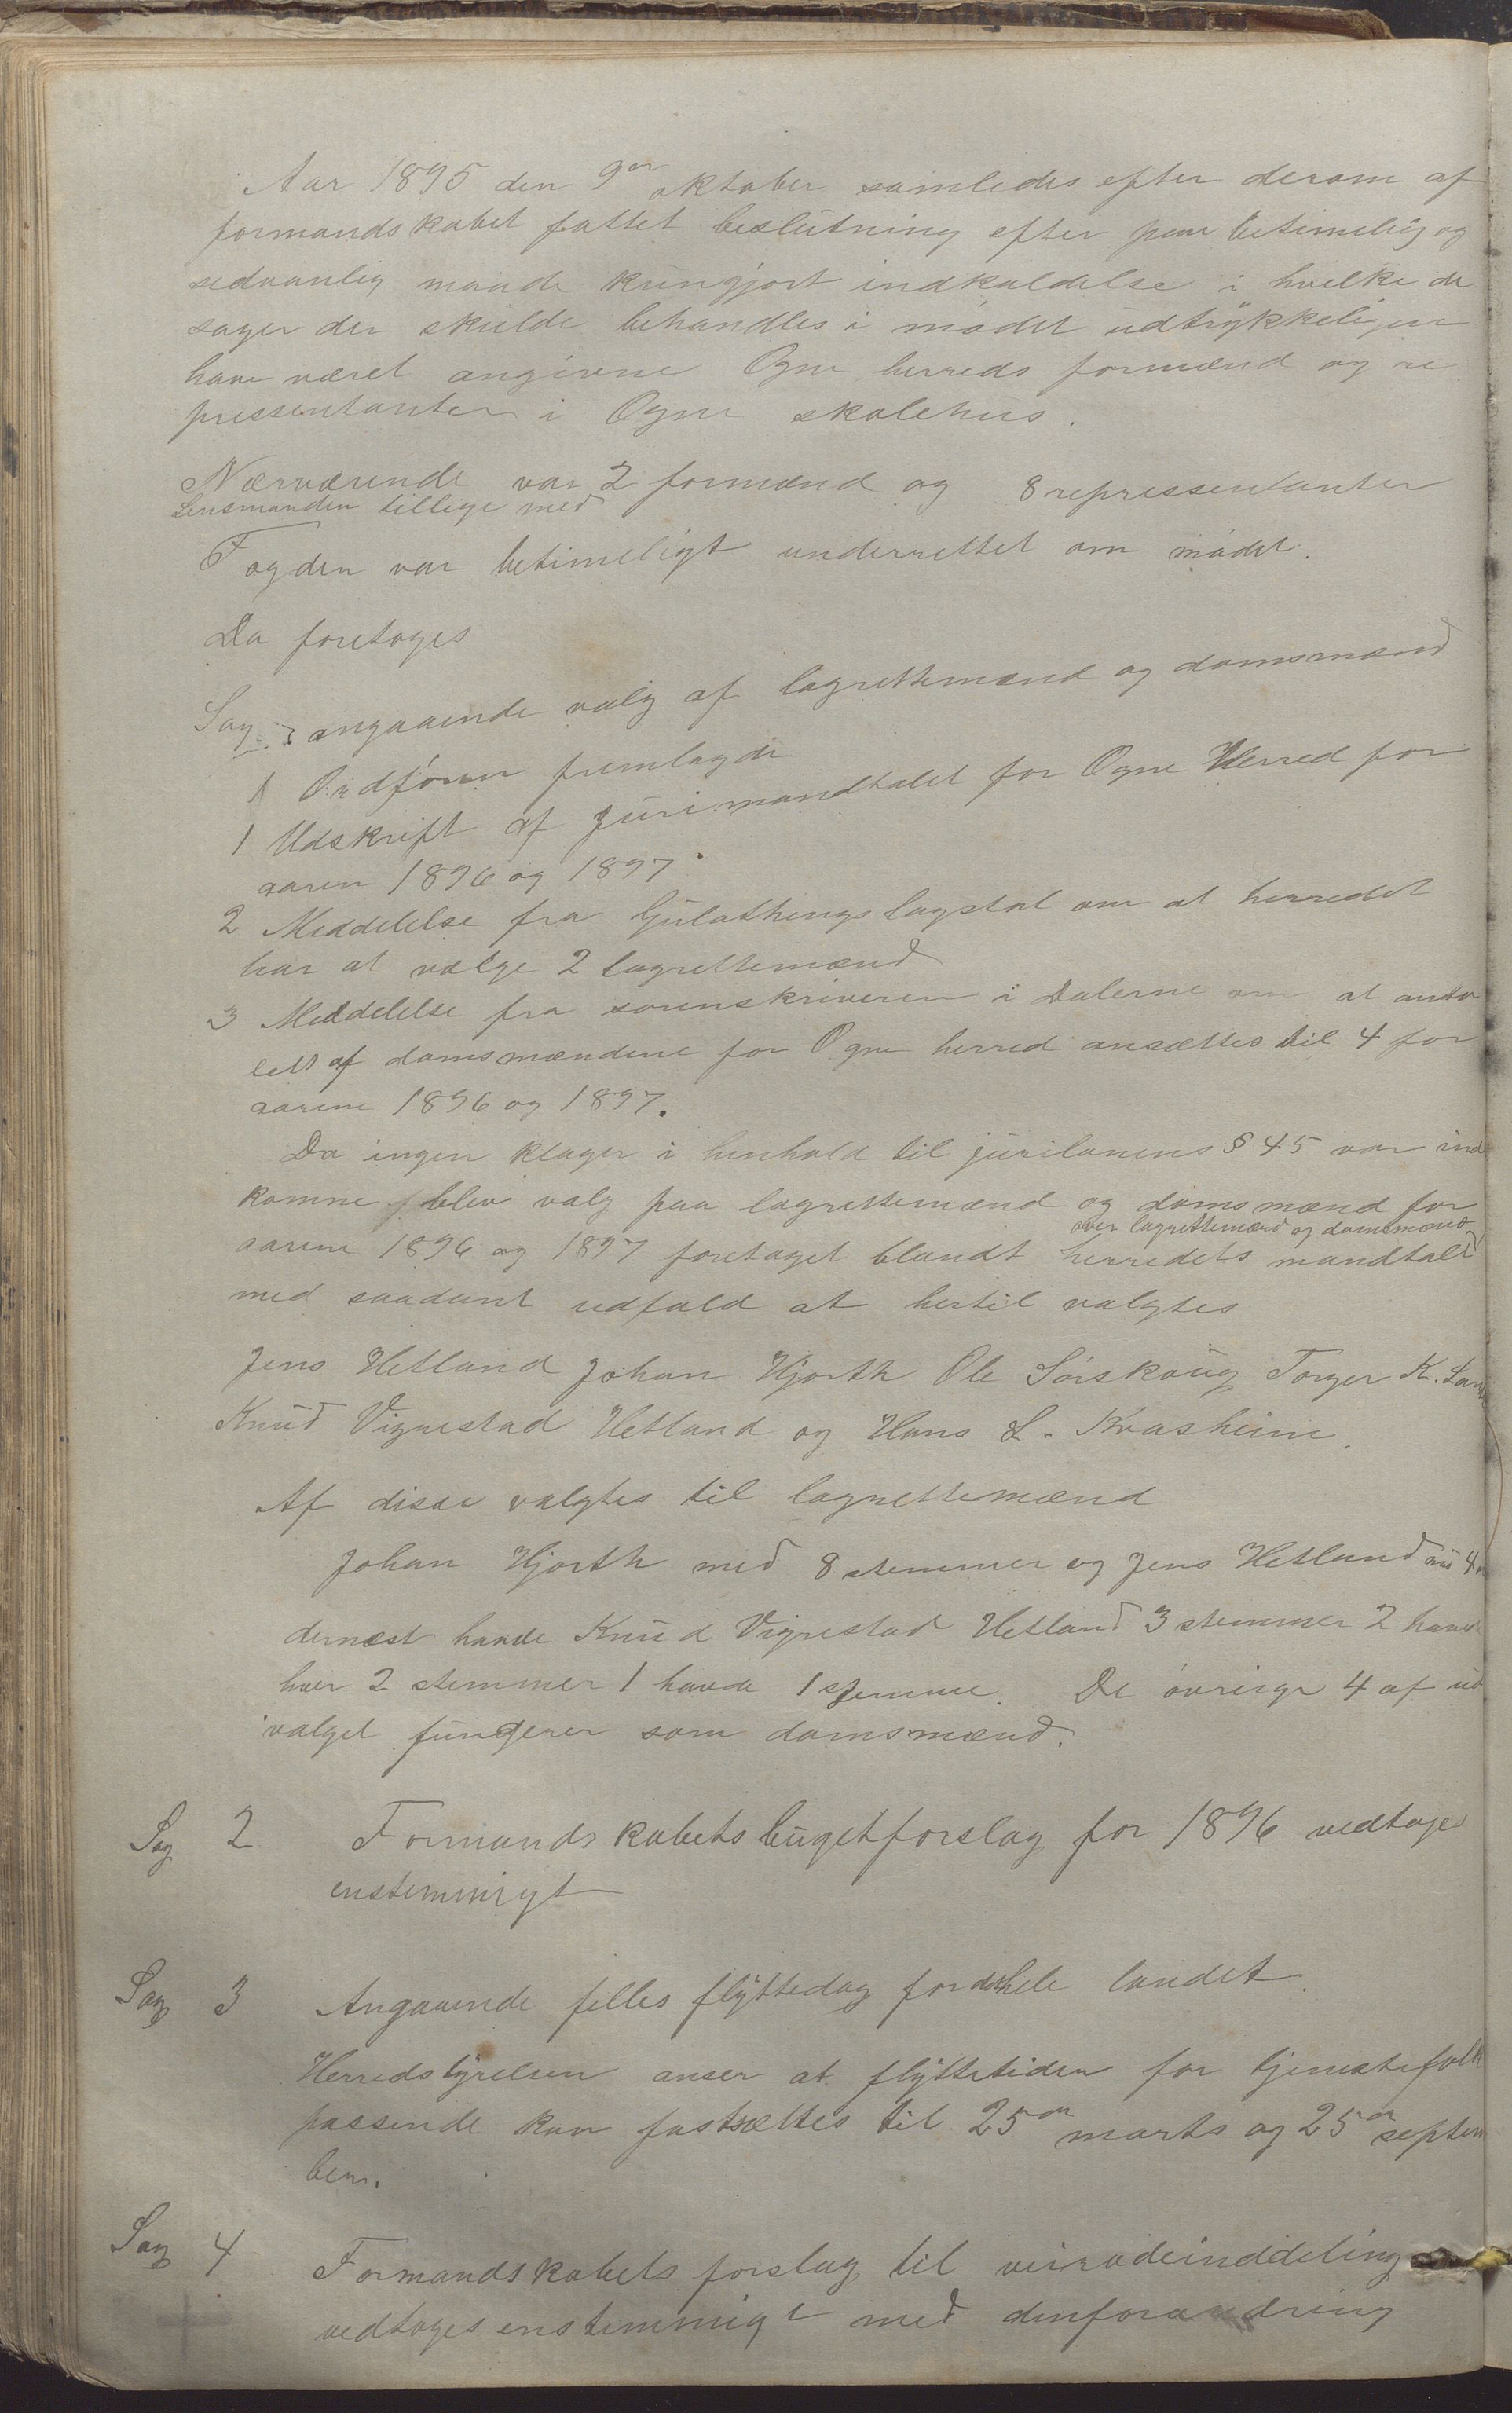 Aar 1895 den 9de oktober samledes efter derom af
formandskabet fattet beslutning efter paa betimelig og
sedvanlig maade kungjort indkaldelse i hvilke de
sager der skulde behandles i mødet udtrykkeligen
have været angivne Ogne herreds formænd og re
pressentanter i Ogne skolehus.
Nærværende var 2 formænd og 8 repressentanter
Lensmanden tillige med
Fogden var betimeligt underrettet om mødet.
Da foretoges
Sag 1 angaaende valg af lagrettemænd og domsmænd
Ordføren fremlagde
1 Udskrift af Jurimandtalet for Ogne Herred for
aaren 1896 og 1897
2 Meddelelse fra Gulathings lagstol om at herredet
har at vælge 2 lagrettemænd
3 Meddelelse fra sorenskriveren i Dalerne om at anta
lett af domsmændene for Ogne herred ansættes til 4 for
aarene 1896 og 1897.
Da ingen klager i henhold til jurilovens § 45 var ind
komne blev valg paa lagrettemænd og domsmænd for
over lagrettemænd og domsmænd
aarene 1896 og 1897 foretaget blandt herredets mandtall
med saadant udfald at hertil valgtes
Jens Hetland Johan Hjorth Ole Sørskoug Torger K.
Knud Vignestad Hetland og Hans L. Kvasheim.
Af disse valgtes til lagrettemænd
Johan Hjorth med 8 stemmer og Jens Hetland 4
dernæst havde Knud Vignestad Hetland 3 stemmer 2 havde
hver 2 stemmer 1 havde 1 stemme. De øvrige 4 af ud
valget fungerer som domsmænd.
Sag 2 Formandskabets bugetforslag for 1896 vedtoges
enstemmigt
Sag 3 Angaaende felles flyttedag for det hele landet.
Herredstyrelsen anser at flyttetiden for tjenestefolk
passende kan fastsættes til 25de marts og 25de septem
ber.
Sag 4 Formandskabets forslag til veirodeinddeling
vedtoges enstemmigt med den forandring